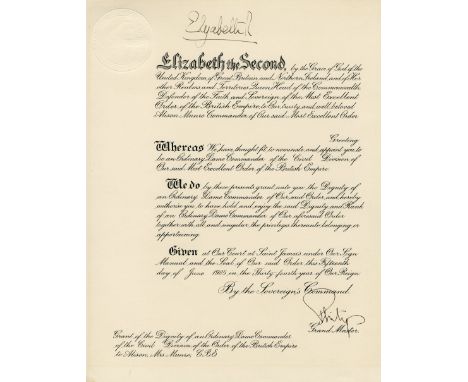 Elizabeth R
Elizabeth the Second, by the Grace of God of the
United Kingdom of Great Britain and Northern Ireland and of Her
other Realms and Territories Queen Head of the Commonwealth,
Defender of the Faith and Sovereign of the Most Excellent
Order of the British Empire to Our trusty and well beloved
Alison Munro Commander of Our said Most Excellent Order
Greeting
Whereas We have thought fit to nominate and appoint you to
be an Ordinary Dame Commander of the Civil Division of
Our said Most Excellent Order of the British Empire
We do by these presents grant unto you the Dignity of
an Ordinary Dame Commander of Our said Order and hereby
authorise you to have hold and enjoy the said Dignity and Rank
of an Ordinary Dame Commander of Our aforesaid Order
together with all and singular the privileges thereunto belonging or
appertaining.
Given at Our Court at Saint James's under Our Sign
Manual and the Seal of Our said Order this Fifteenth
day of June 1985 in the Thirty-fourth year of Our Reign
By the Sovereign's Command.
Philip
Grand Master
Grant of the Dignity of an Ordinary Dame Commander
of the Civil Division of the Order of the British Empire
to Alison, Mrs. Munro, C.B.E